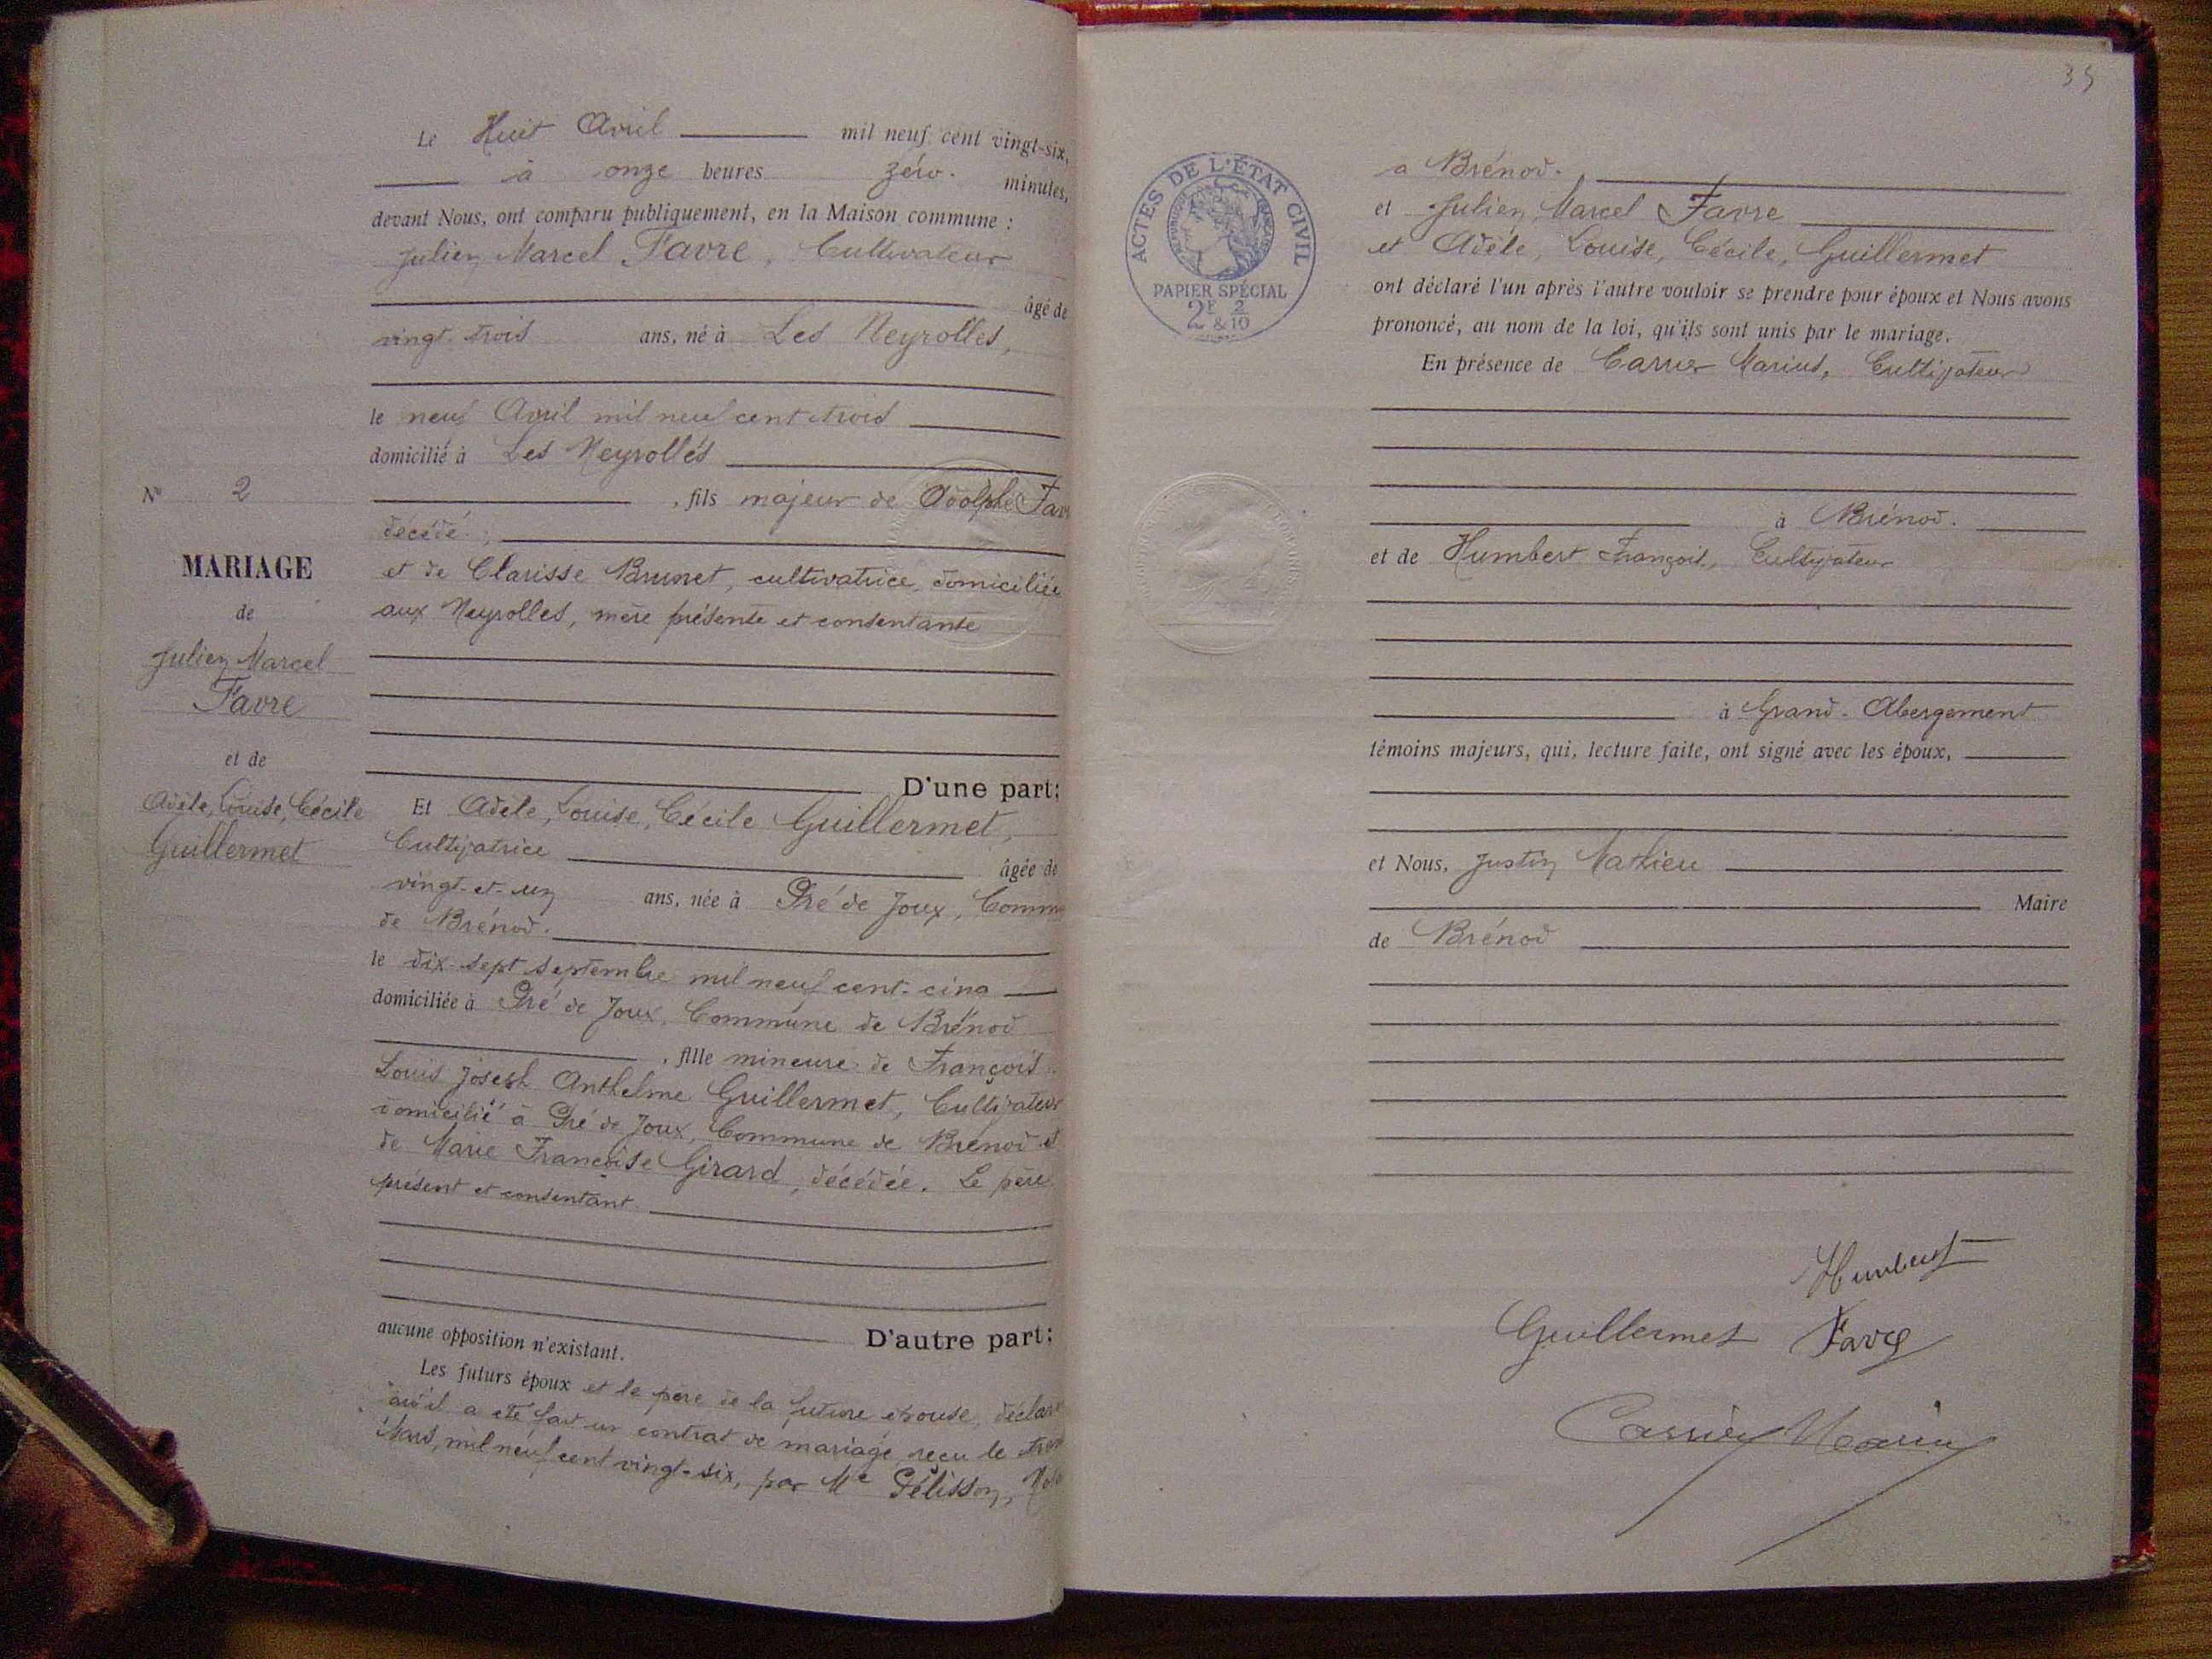 Le Huit Avril mil neuf cent vingt-six,
à onze heures zéro. minutes,
devant Nous, ont comparu publiquement, en la Maison commune :
Julien Marcel Favre, Cultivateur
âgé de
vingt-trois ans, né à Les Neyrolles,
le neuf Avril mil neuf cent trois
domicilié à Les Neyrolles
, fils majeur de Adolphe
décédé,
et de Clarisse Brunet, cultivatrice, domiciliée
aux Neyrolles, mère présente et consentante
D'une part;
Et Adèle, Louise, Cécile Guillermet,
Cultivatrice
âgée de
vingt-et-un ans, née à Pré de Joux,
de Brénod.
le dix-sept septembre mil neuf cent-cinq
domiciliée à Pré de Joux, Commune de Brénod
, fille mineure de François
Louis Joseph Anthelme Guillermet, Cultivateur
domicilié à Pré de Joux, Commune de Brénod et
de Marie Françoise Girard, décédée. Le père
présent et consentant.
D'autre part;
aucune opposition n'existant.
Les futurs époux et le père de la future épouse,
qu'il a été fait un contrat de mariage reçu le
Mars, mil neuf cent vingt-six, par Me Pélisson,
N° 2
MARIAGE
de
Julien Marcel
Favre
et de
Adèle, Louise, Cécile
Guillermet
35
ACTES DE L'ÉTAT CIVIL
PAPIER SPÉCIAL
2F & 2/10
a Brénod.
et Julien Marcel Favre
et Adèle, Louise, Cécile, Guillermet
ont déclaré l'un après l'autre vouloir se prendre pour époux et Nous avons
prononcé, au nom de la loi, qu'ils sont unis par le mariage.
En présence de Carrier Marius, Cultivateur
à Brénod.
et de Humbert François, Cultivateur
à Grand-Abergement
témoins majeurs, qui, lecture faite, ont signé avec les époux,
et Nous, Justin Mathieu
Maire
de Brénod
Humbert
Guillermet Favre
Carrier Marius